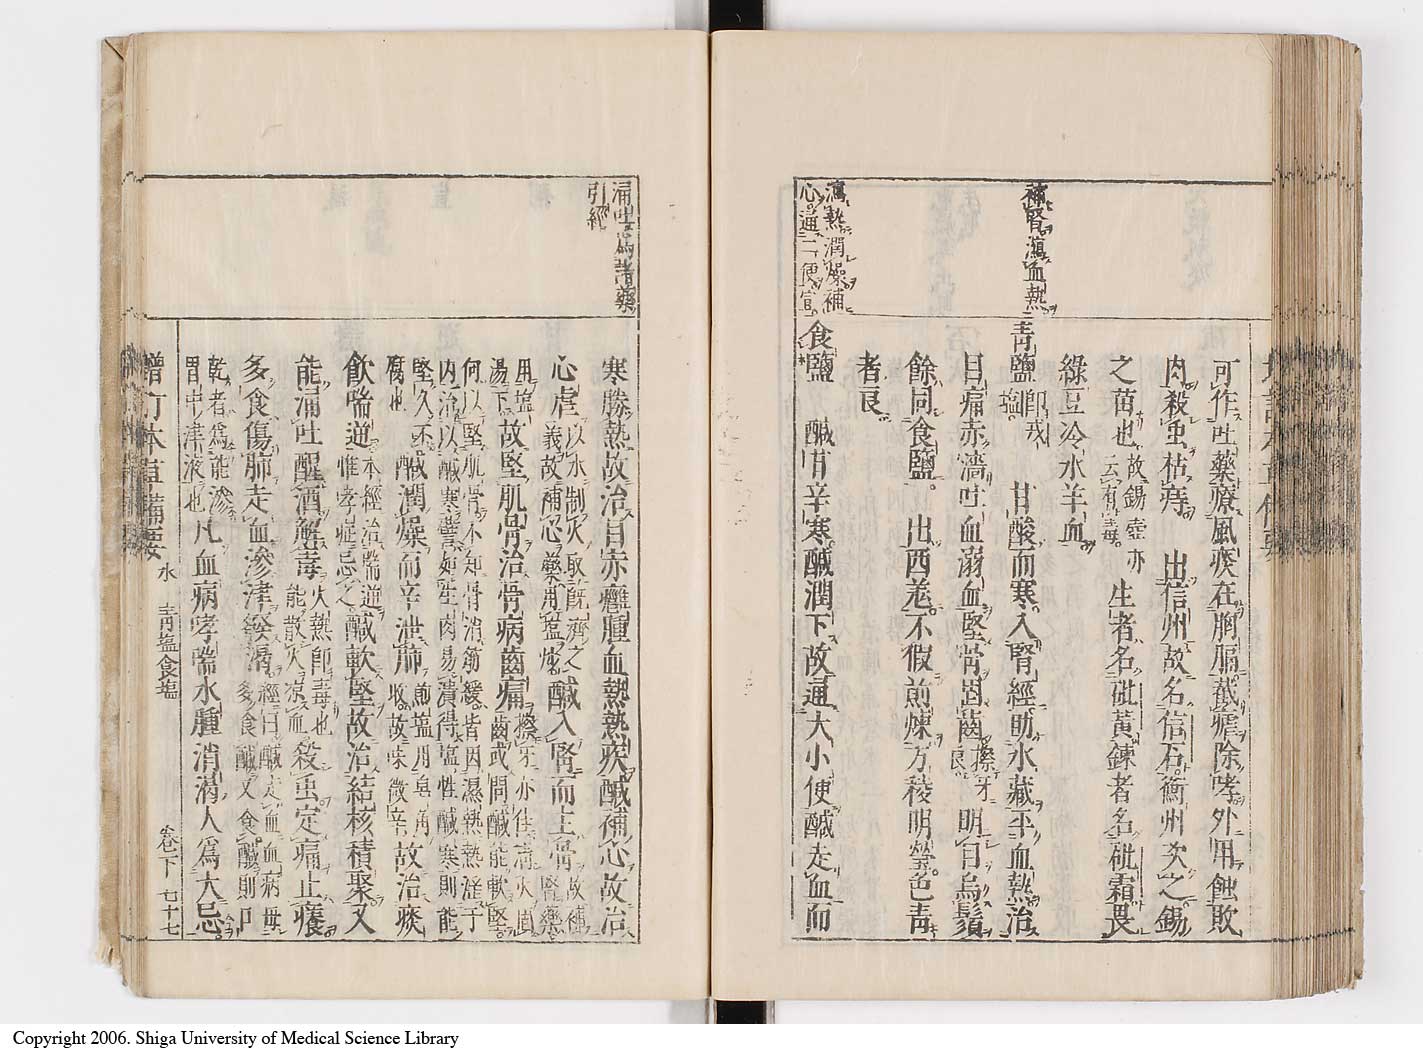 補腎瀉血熱
瀉熱潤燥補
心通二便宣
可作吐藥療風痰在胸膈截瘧除哮外用蝕敗
肉殺虫枯痔 出信州故名信石衡州次之錫
之苗也故錫壺亦云有毒。生者名砒黃鍊者名砒霜畏
綠豆冷水羊血
青鹽即戎塩 甘酸而寒入腎經助水藏平血熱治
目痛赤濇吐血溺血堅骨固齒擦牙良明目烏鬚
餘同食鹽。 出西羗不假煎煉方稜明瑩色青
者良
食鹽 鹹甘辛寒鹹潤下故通大小便鹹走血而
涌吐為諸藥
引經
寒勝熱故治目赤癰腫血熱熱疾鹹補心故治
心虛以水制火取旣濟之義故補心藥用塩炒鹹入腎而主骨故補腎藥
用塩湯下故堅肌骨治骨病齒痛擦牙亦佳清火固齒或問鹹能軟堅
何以堅肌骨不知骨消筋緩皆因濕熱熱淫于
內治以鹹寒譬如生肉易潰得塩性鹹寒則能
堅久不腐也鹹潤燥而辛泄肺煎塩用皂角收故味微辛故治痰
飲喘逆本經治喘逆惟哮症忌之鹹軟堅故治結核積聚又
能涌吐醒酒解毒火熱即毒也能散火凉血殺虫定痛止癢
多食傷肺走血滲津發渴經曰鹹走血血病毋多食鹹又食鹹則口
乾者為能滲胃中津液也凡血病哮喘水腫消渴人為大忌
增訂本草備要 水 青塩食塩 卷下 七十七
Copyright 2006. Shiga University of Medical Science Library